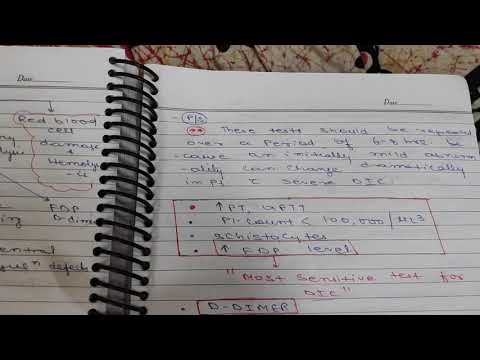 Date
Date
Red blood
cell
damage
+
Hemoly
FDP
D-dime
ing
entral
defect
P/S
** These tests should be repeated
over a Period of 6-8 hrs. be
- cause an initially mild abnorm
- ality can change dramatically
in Pt c severe DIC.
• ↑ PT, aPTT
• Pl. count < 100,000 /
• Schistocytes
• ↑ FDP level
"Most sensitive test for
DIC"
• D-DIMER